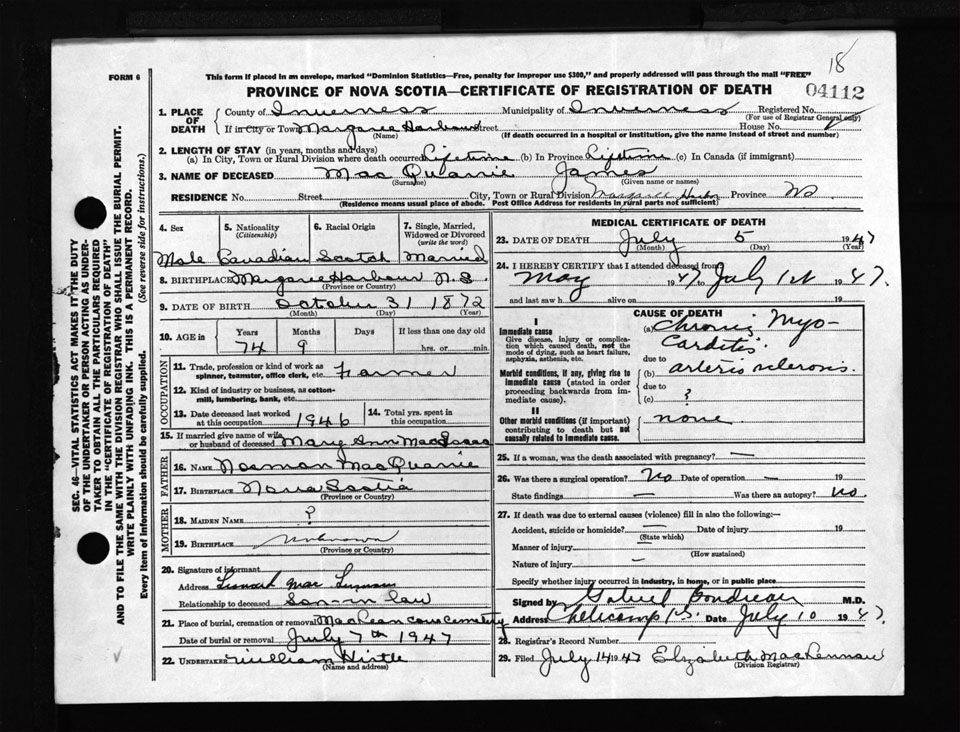 18
FORM 6
This form if placed in an envelope, marked "Dominion Statistics—Free, penalty for improper use $300," and properly addressed will pass through the mail "FREE"
PROVINCE OF NOVA SCOTIA—CERTIFICATE OF REGISTRATION OF DEATH
04112
1. PLACE OF DEATH
County of Inverness Municipality of Inverness Registered No.
(For use of Registrar General only)
If in City or Town Margaree Harbour Street House No.
(Name) (If death occurred in a hospital or institution, give the name instead of street and number)
2. LENGTH OF STAY (in years, months and days)
(a) In City, Town or Rural Division where death occurred Lifetime (b) In Province Lifetime (c) In Canada (if immigrant)
3. NAME OF DECEASED Mac Quarrie James
(Surname) (Given name or names)
RESIDENCE No. Street City, Town or Rural Division Margaree Harbor Province NS
(Residence means usual place of abode. Post Office Address for residents in rural parts not sufficient)
4. Sex
Male
5. Nationality
(Citizenship)
Canadian
6. Racial Origin
Scotch
7. Single, Married, Widowed or Divorced
(write the word)
Married
8. BIRTHPLACE Margaree Harbour N.S
(Province or Country)
9. DATE OF BIRTH October 31 1872
(Month) (Day) (Year)
10. AGE in
Years Months Days If less than one day old
74 9 hrs. or min.
OCCUPATION
11. Trade, profession or kind of work as spinner, teamster, office clerk, etc. Farmer
12. Kind of industry or business, as cotton-mill, lumbering, bank, etc.
13. Date deceased last worked at this occupation 1946
14. Total yrs. spent in this occupation
15. If married give name of wife or husband of deceased Mary Ann MacIsaac
FATHER
16. NAME Norman MacQuarrie
17. BIRTHPLACE Nova Scotia
(Province or Country)
MOTHER
18. MAIDEN NAME ?
19. BIRTHPLACE Unknown
(Province or Country)
20. Signature of informant
Address
Relationship to deceased Son in law
21. Place of burial, cremation or removal Cemetery
Date of burial or removal July 7th 1947
22. UNDERTAKER William Hirtle
(Name and address)
MEDICAL CERTIFICATE OF DEATH
23. DATE OF DEATH July 5 1947
(Month) (Day) (Year)
24. I HEREBY CERTIFY that I attended deceased from
May 1947 to July 1st 1947.
and last saw h alive on 19
CAUSE OF DEATH
I
Immediate cause
Give disease, injury or complication which caused death, not the mode of dying, such as heart failure, asphyxia, asthenia, etc.
(a) Chronic Myo-
Carditis.
due to
Morbid conditions, if any, giving rise to immediate cause (stated in order proceeding backwards from immediate cause).
(b) arterio sclerosis.
due to
(c) ?
II
Other morbid conditions (if important) contributing to death but not causally related to immediate cause.
none
25. If a woman, was the death associated with pregnancy? —
26. Was there a surgical operation? No Date of operation — 19
State findings — Was there an autopsy? no.
27. If death was due to external causes (violence) fill in also the following:—
Accident, suicide or homicide? — Date of injury 19
(State which)
Manner of injury
(How sustained)
Nature of injury —
Specify whether injury occurred in industry, in home, or in public place
Signed by Gabriel Boudreau M.D.
Address Cheticamp N.S. Date July 10 1947
28. Registrar's Record Number
29. Filed July 14 1947 Elizabeth MacLennan
(Division Registrar)
SEC. 46—VITAL STATISTICS ACT MAKES IT THE DUTY
OF THE UNDERTAKER OR PERSON ACTING AS UNDER-
TAKER TO OBTAIN ALL THE PARTICULARS REQUIRED
IN THE "CERTIFICATE OF REGISTRATION OF DEATH"
AND TO FILE THE SAME WITH THE DIVISION REGISTRAR WHO SHALL ISSUE THE BURIAL PERMIT.
WRITE PLAINLY WITH UNFADING INK. THIS IS A PERMANENT RECORD.
Every item of information should be carefully supplied. (See reverse side for instructions.)